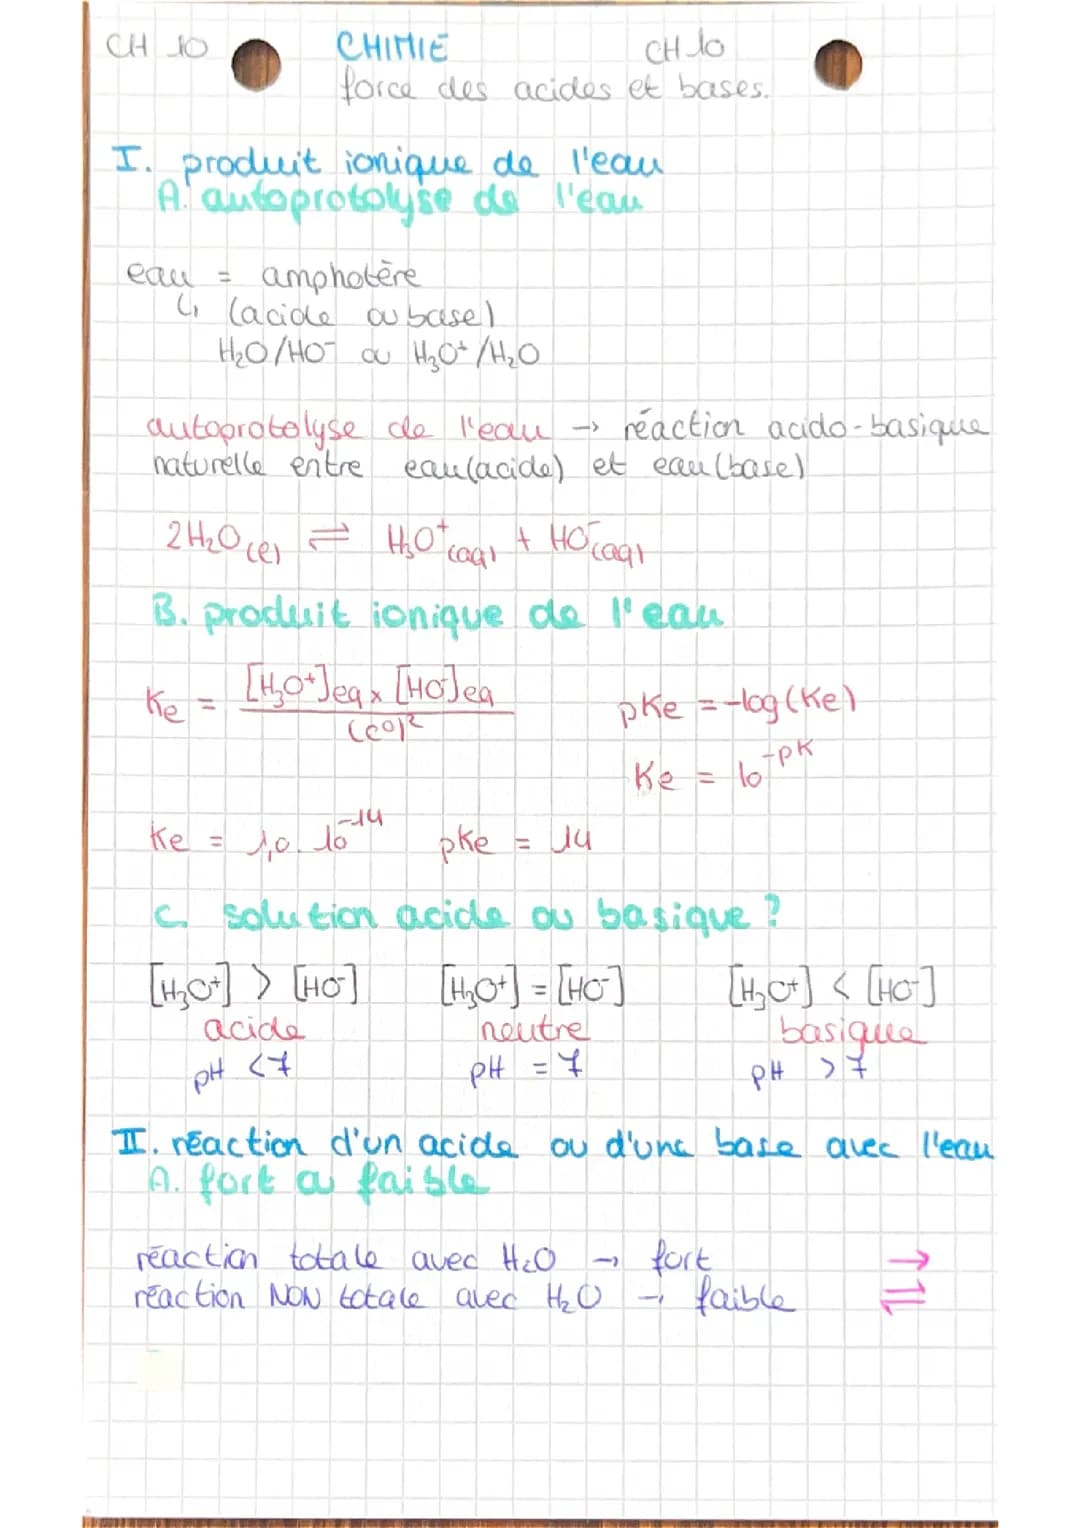 CH 10 CHIMIE CH 10
force des acides et bases.
I. produit ionique de l'eau
A. autoprotolyse de l'eau
eau = amphotère
↳ (acide ou base)
H₂O/HO⁻ ou H₃O⁺/H₂O
autoprotolyse de l'eau → réaction acido-basique
naturelle entre eau(acide) et eau(base)
2H₂O(l) ⇌ H₃O⁺(aq) + HO⁻(aq)
B. produit ionique de l'eau
Ke = [H₃O⁺]eq × [HO⁻]eq / (c⁰)² pKe = -log(Ke)
Ke = 10^-pK
Ke = 1,0. 10^-14 pKe = 14
C. solution acide ou basique ?
[H₃O⁺] > [HO⁻] [H₃O⁺] = [HO⁻] [H₃O⁺] < [HO⁻]
acide neutre basique
pH < 7 pH = 7 pH > 7
II. réaction d'un acide ou d'une base avec l'eau
A. fort ou faible
réaction totale avec H₂O → fort →
réaction NON totale avec H₂O → faible ⇌